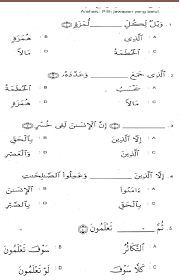 Arahan: Pilih jawapan yang betul.
1. وَيْلٌ لِكُلِّ ________ لُّمَزَةٍ
A : الَّذِى B : هُمَزَةٍ
C : الْحُطَمَةُ D : مَالًا
2. الَّذِى جَمَعَ ________ وَعَدَّدَهُ
B : الْحُطَمَةُ
C : مَالًا D : هُمَزَةٍ
3. ________ إِنَّ الْإِنسَٰنَ لَفِى خُسْرٍ
A : إِلَّا الَّذِينَ B : بِالْحَقِّ
C : الَّذِينَ D : وَالْعَصْرِ
4. إِلَّا الَّذِينَ ________ وَعَمِلُوا الصَّٰلِحَٰتِ
A : ءَامَنُوا B : الْإِنسَٰنَ
C : بِالْحَقِّ D : بِالصَّبْرِ
5. ثُمَّ ________ تَعْلَمُونَ
A : التَّكَاثُرُ B : سَوْفَ تَعْلَمُونَ
C : كَلَّا سَوْفَ D : لَوْ تَعْلَمُونَ